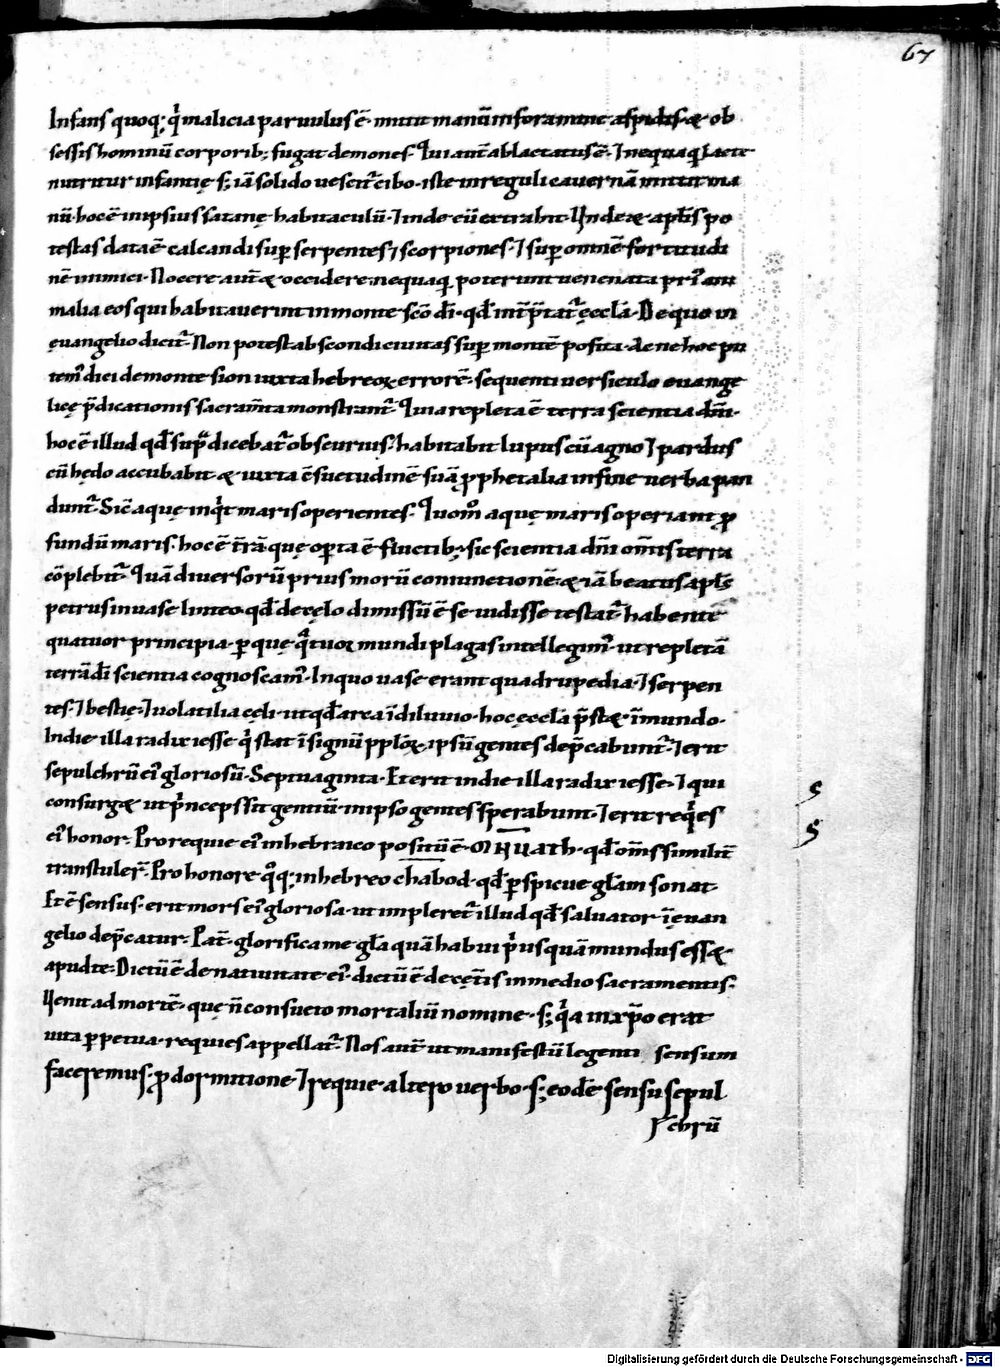 67
Infans quoq; qͥ malicia paruulus ē· mittit manū in foramine aspidis· & ob
sessis hominū corporib; fugat demones· Qui aut̄ ablactatus ē· ⁊ nequaquā lacte
nutritur infantię s; iā solido uescit᷑ cibo· iste in reguli cauernā mittit ma
nū· hoc ē in ipsius satanę habitaculū· ⁊ inde eū extrahit· Unde & apl̄is po
testas data ē calcandi sup̱ serpentes ⁊ scorpiones· ⁊ sup̱ omnē fortitudi
nē inimici· Nocere aut̄ & occidere nequaquā poterunt uenenata pri᷒ ani
malia eos qui habitauerint in monte sc̄o dī· qd̄ int̄p̄tat᷑ ęccl̄a· De quo in
euangelio dicit᷑· Non potest abscondi ciuitas sup̱ montē posita· Ac ne hoc pu
tem᷒ dici de monte sion iuxta hebreoꝝ errorē· sequenti uersiculo euange
licę p̄dicationis sacram̄ta monstrant᷑· Quia repleta ē terra scientia dn̄i·
hoc ē illud qd̄ supͣ dicebat᷑ obscurius· habitabit lupus cū agno ⁊ pardus
cū hędo accubabit & iuxta c̄suetudinē suā ꝓphetalia in fine uerba pan
dunt᷑· Sic̄ aquę inqͥt maris operientes· Quom̊ aquę maris operiant ꝓ
fundū maris· hoc ē t̄rā quę op̱ta ē fluctib; sic scientia dn̄i om̄is terra
cōplebit᷑· Quā diuersorū prius morū coniunctionē· & iā beatus apl̄s
petrus in uase linteo· qd̄ de cęlo dimissū ē se uidisse testat᷑ habente
quatuor principia· p̱ quę qͣtuor mundi plagas intellegim᷒· ut repletā
terrā dī scientia cognoscam᷒· In quo uase erant quadrupedia· ⁊ serpen
tes· ⁊ bestię· ⁊ uolatilia cęli· ut qd̄ arca ī diluuio· hoc ęccl̄a p̄st& ī mundo·
In die illa radix iesse qͥ stat ī signū ppl̄oꝝ· ipsū gentes dep̄cabunt᷑· ⁊ erit
sepulchrū ei᷒ gloriosū· Septuaginta· Et erit in die illa radix iesse· ⁊ qui
consurg& ut pͥnceps sit gentiū· in ipso gentes sperabunt· ⁊ erit reqͥes
ei᷒ honor· Pro requie ei᷒ in hebraico positū ē· MNUATH· qd̄ om̄s similit̄
transtuler̄· Pro honore qͦq; in hebreo chabod· qd̄ p̱spicue gl̄am sonat·
Et ē sensus· erit mors ei᷒ gloriosa· ut impleret᷑ illud qd̄ saluator ī euan
gelio dep̄catur· Pat̄· glorifica me gl̄a quā habui pͥusquā mundus ess&
apud te· Dictū ē de natiuitate ei᷒· dictū ē de cęt̄is in medio sacramentis·
Uenit ad mortē· quę n̄ consueto mortaliū nomine· s; qͥa in xp̄o erat
uita p̱petua· requies appellat᷑· Nos aut̄ ut manifestū legenti sensum
faceremus· ꝓ dormitione ⁊ requie· altero uerbo· s; eodē sensu sepul
chrū
Digitalisierung gefördert durch die Deutsche Forschungsgemeinschaft - DFG